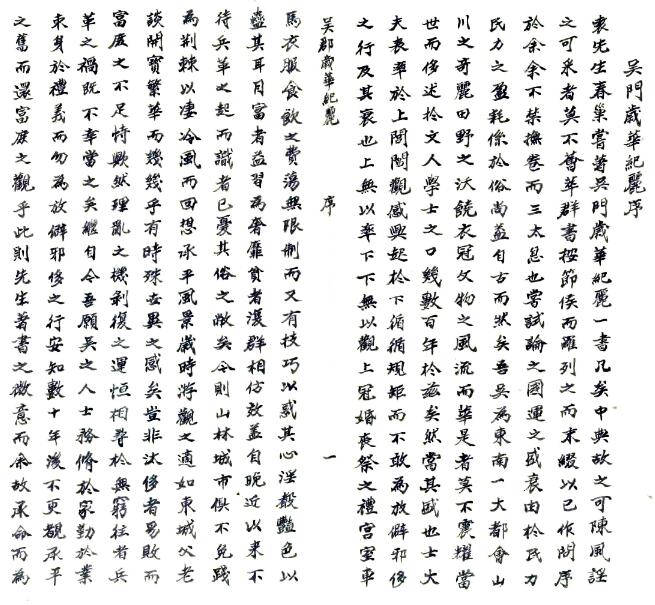 吳門歲華紀麗序
袁先生春巢嘗著吳門歲華紀麗一書凡吳中典故之可陳風謠
之可采者莫不薈萃群書按節候而羅列之而末綴以已作問序
於余余不禁撫卷而三太息也嘗試論之國運之盛衰由於民力
民力之盈耗係於俗尚蓋自古而然矣吾吳為東南一大都會山
川之奇麗田野之沃饒衣冠文物之風流而萃是者莫不震耀當
世而侈述於文人學士之口幾數百年於茲矣然當其盛也士大
夫表率於上閭閻觀感興起於下循循規矩而不敢為放僻邪侈
之行及其衰也上無以率下下無以觀上冠婚喪祭之禮宮室車
吳郡歲華紀麗 序 一
馬衣服食飲之費蕩無限制而又有技巧以惑其心淫聲豔色以
蠱其耳目富者益習為奢靡貧者漫群相仿效蓋自晚近以來不
待兵革之起而識者已憂其俗之敝矣今則山林城市俱不免踐
為荆棘以淒冷風而回想承平風景歲時將觀之適如東城父老
談開寶繁華而幾幾乎有時殊世異之感矣豈非汰侈者易敗而
富庶之不足恃歟然理亂之機剝復之運恒相尋於無窮往者兵
革之禍既不幸當之矣繼自今吾願吳之人士務脩於家勤於業
束身於禮義而勿為放僻邪侈之行安知數十年後不更覩承平
之舊而還富庶之觀乎此則先生著書之微意而余故承命而為